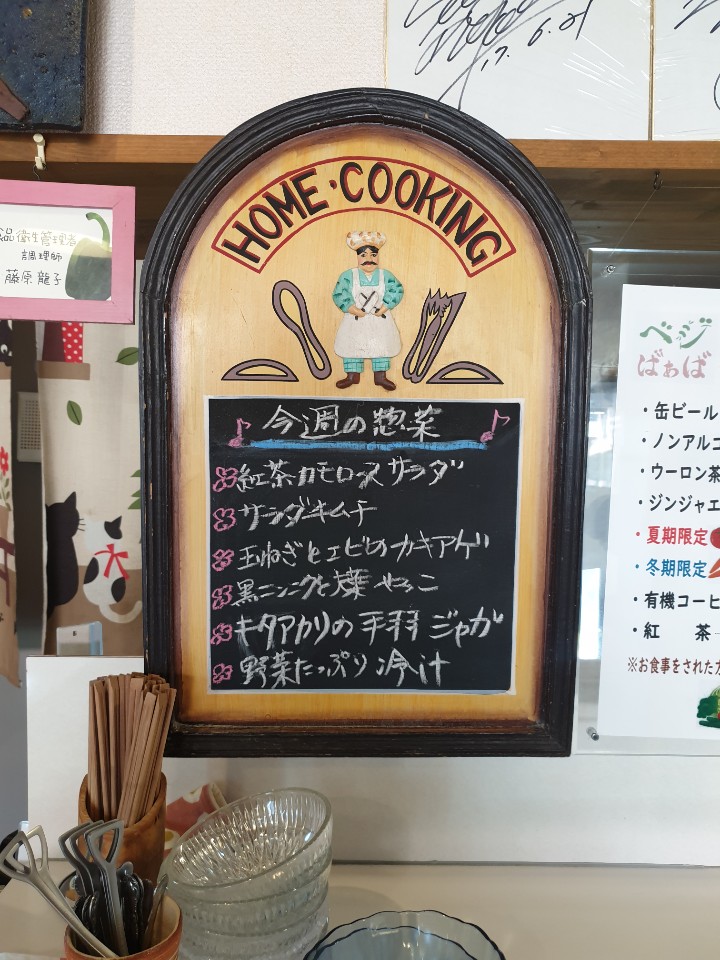 17.6.21
HOME・COOKING
品衛生管理者
調理師
藤原 龍子
♪今週の惣菜♪
紅茶カモロースサラダ
サラダキムチ
玉ねぎとエビのカキアゲ
黒ニンニクと大葉やっこ
キタアカリの手羽ジャガ
野菜たっぷり冷汁
ベジ
ばぁば
・缶ビール
・ノンアルコ
・ウーロン茶
・ジンジャエ
・夏期限定
・冬期限定
・有機コーヒ
・紅 茶
※お食事をされた方